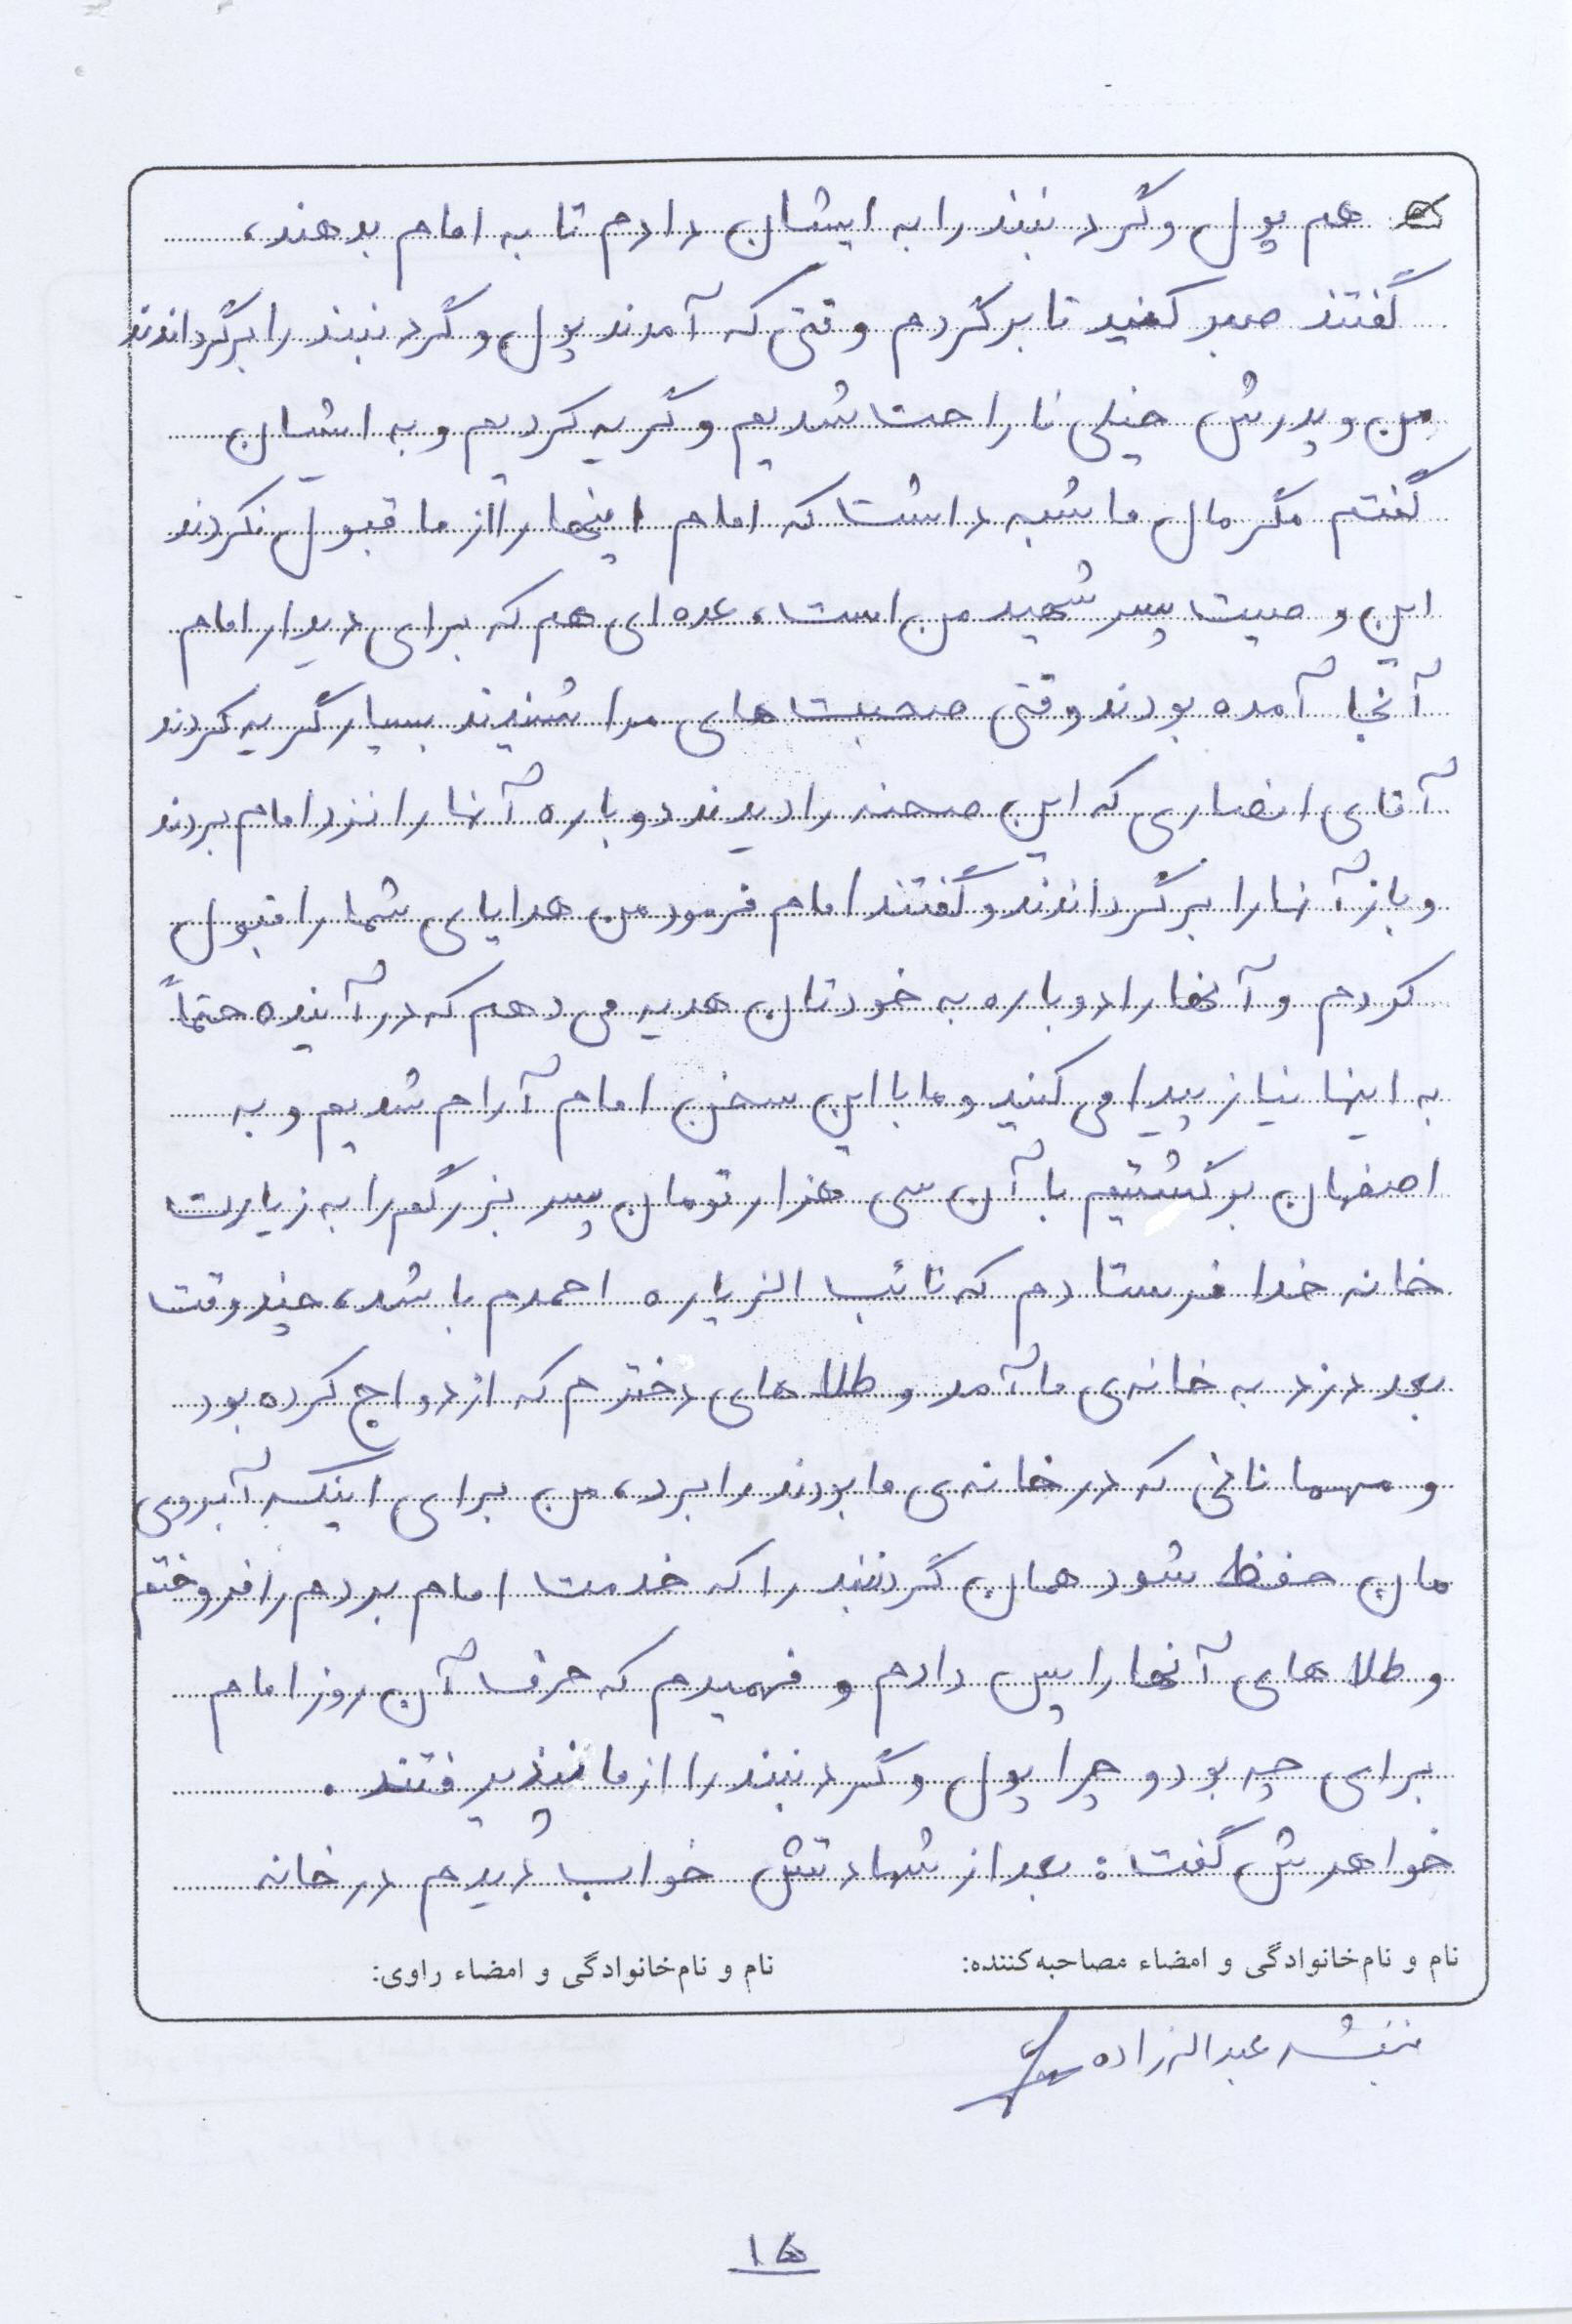 هم پول و گردنبند را به ایشان دادم تا به امام بدهند،
گفتند صبر کنید تا برگردم وقتی که آمدند پول و گردنبند را برگرداندند
من و پدرش خیلی ناراحت شدیم و گریه کردیم و به ایشان
گفتم مگر مال ما شبه داشت که امام اینها را از ما قبول نکردند
این وصیت پسر شهید من است، عده‌ای هم که برای دیدار امام
آنجا آمده بودند وقتی صحبت‌های مرا شنیدند بسیار گریه کردند
آقای انصاری که این صحنه را دیدند دوباره آنها را نزد امام بردند
و باز آنها را برگرداندند و گفتند امام فرمود من هدایای شما را قبول
کردم و آنها را دوباره به خودتان هدیه می‌دهم که در آینده حتماً
به اینها نیاز پیدا می‌کنید و ما با این سخن امام آرام شدیم و به
اصفهان برگشتیم با آن سی هزار تومان پسر بزرگم را به زیارت
خانه خدا فرستادم که نائب الزیاره احمدم باشد، چند وقت
بعد دزد به خانه‌ی ما آمد و طلاهای دخترم که ازدواج کرده بود
و مهمانانی که در خانه‌ی ما بودند را برد، من برای اینکه آبروی
مان حفظ شود همان گردنبند را که خدمت امام بردم را فروختم
و طلاهای آنها را پس دادم و فهمیدم که حرف آن روز امام
برای چه بود و چرا پول و گردنبند را از ما نپذیرفتند.
خواهرش گفت: بعد از شهادتش خواب دیدم در خانه
نام و نام‌خانوادگی و امضاء مصاحبه‌کننده: نام و نام‌خانوادگی و امضاء راوی:
بنفشه عبداله زاده
۱۵